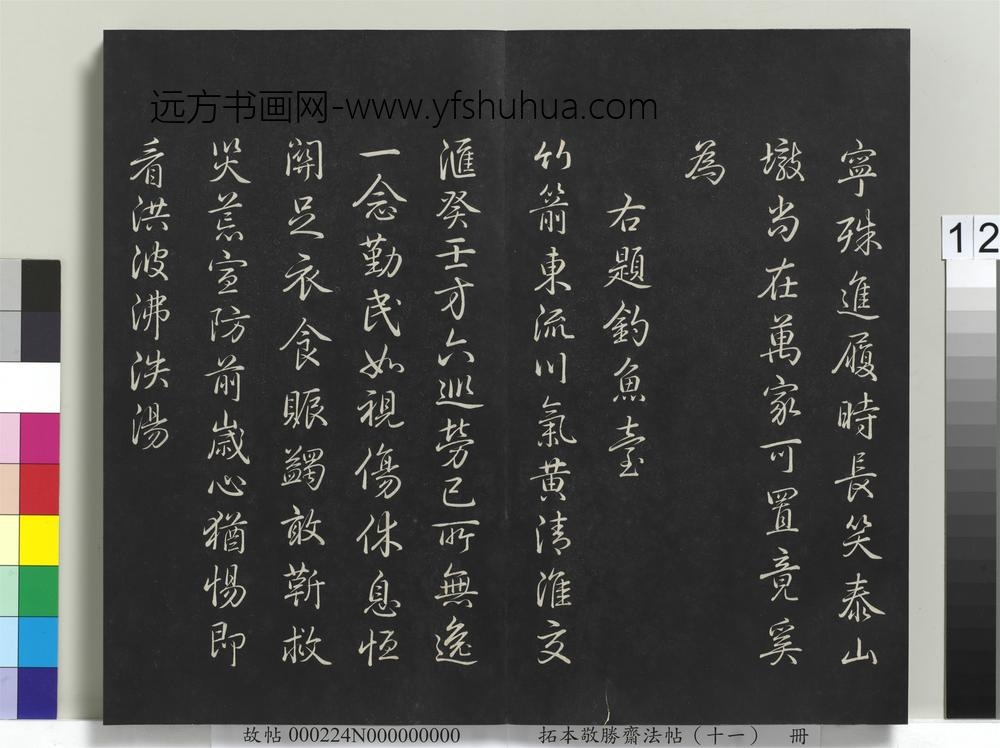 寧殊進履時長笑泰山
墩尚在萬家可置竟奚
為
右題釣魚臺
竹箭東流川氣黃清淮交
滙癸壬才六巡勞已所無逸
一念勤民如視傷休息恒
關足衣食賑蠲敢靳救
災荒宣防前歲心猶惕即
看洪波沸泆湯
远方书画网-www.yfshuhua.com
12
故帖 000224N000000000
拓本敬勝齋法帖（十一） 冊